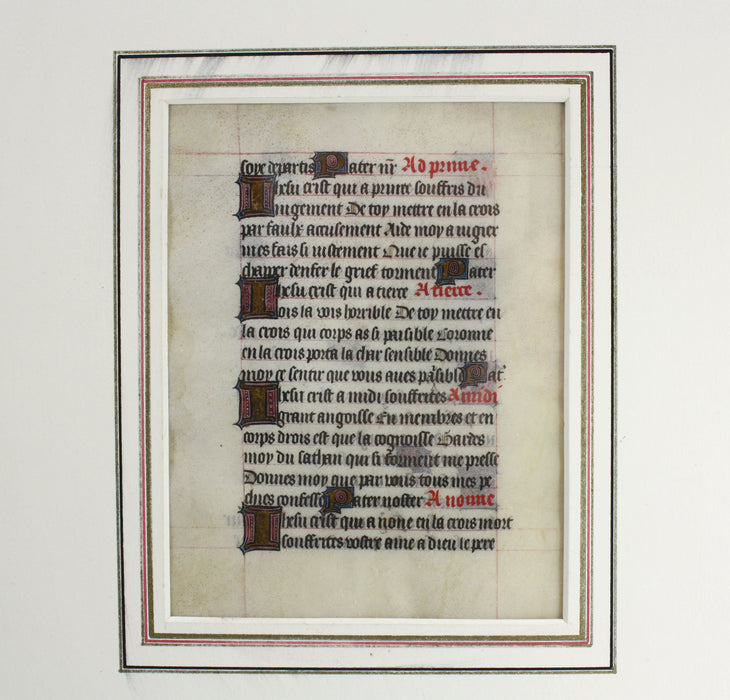 soye departis Pater nr̄ Ad prime.
Ihesu crist qui a prime souffris du
iugement De toy mettre en la crois
par faulx accusement Aide moy a iugier
mes fais si iustement Que ie puisse es
chapper denfer le grief torment Pater
Ihesu crist qui a tierce A tierce.
ois la vois horrible De toy mettre en
la crois qui corps as si paisible Coronne
en la crois porta la char sensible Donnes
moy ce sentir que vous aues pasible Pat'
Ihesu crist a midi souffrites A midi
grant angoisse En membres et en
corps drois est que la cognoisse Gardes
moy du sathan qui si torment me presse
Donnes moy que par vous tous mes pe
chies confesse Pater noster A nonne
Ihesu crist qui a none en la crois mort
souffrites vostre ame a dieu le pere